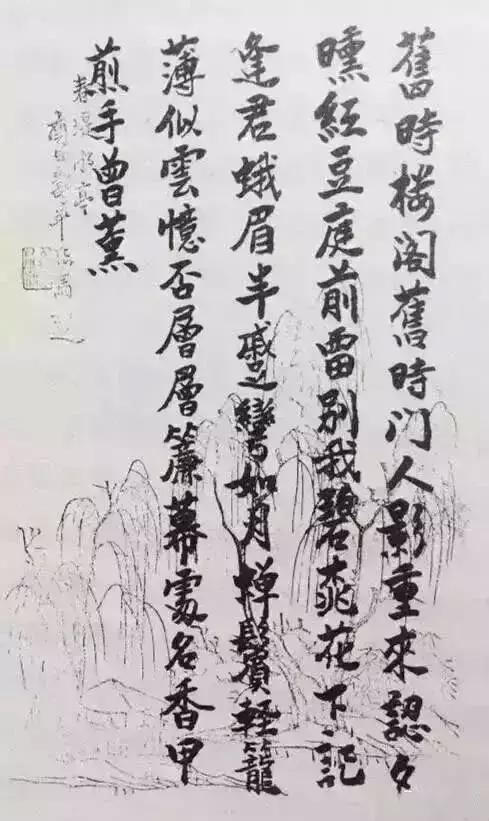 舊時楼阁舊時门人影重來認夕
曛紅豆庭前留别我碧桃花下記
逢君蛾眉半蹙彎如月蟬鬢輕籠
薄似雲憶否層層簾幕處名香甲
煎手曾薰
春堤亭